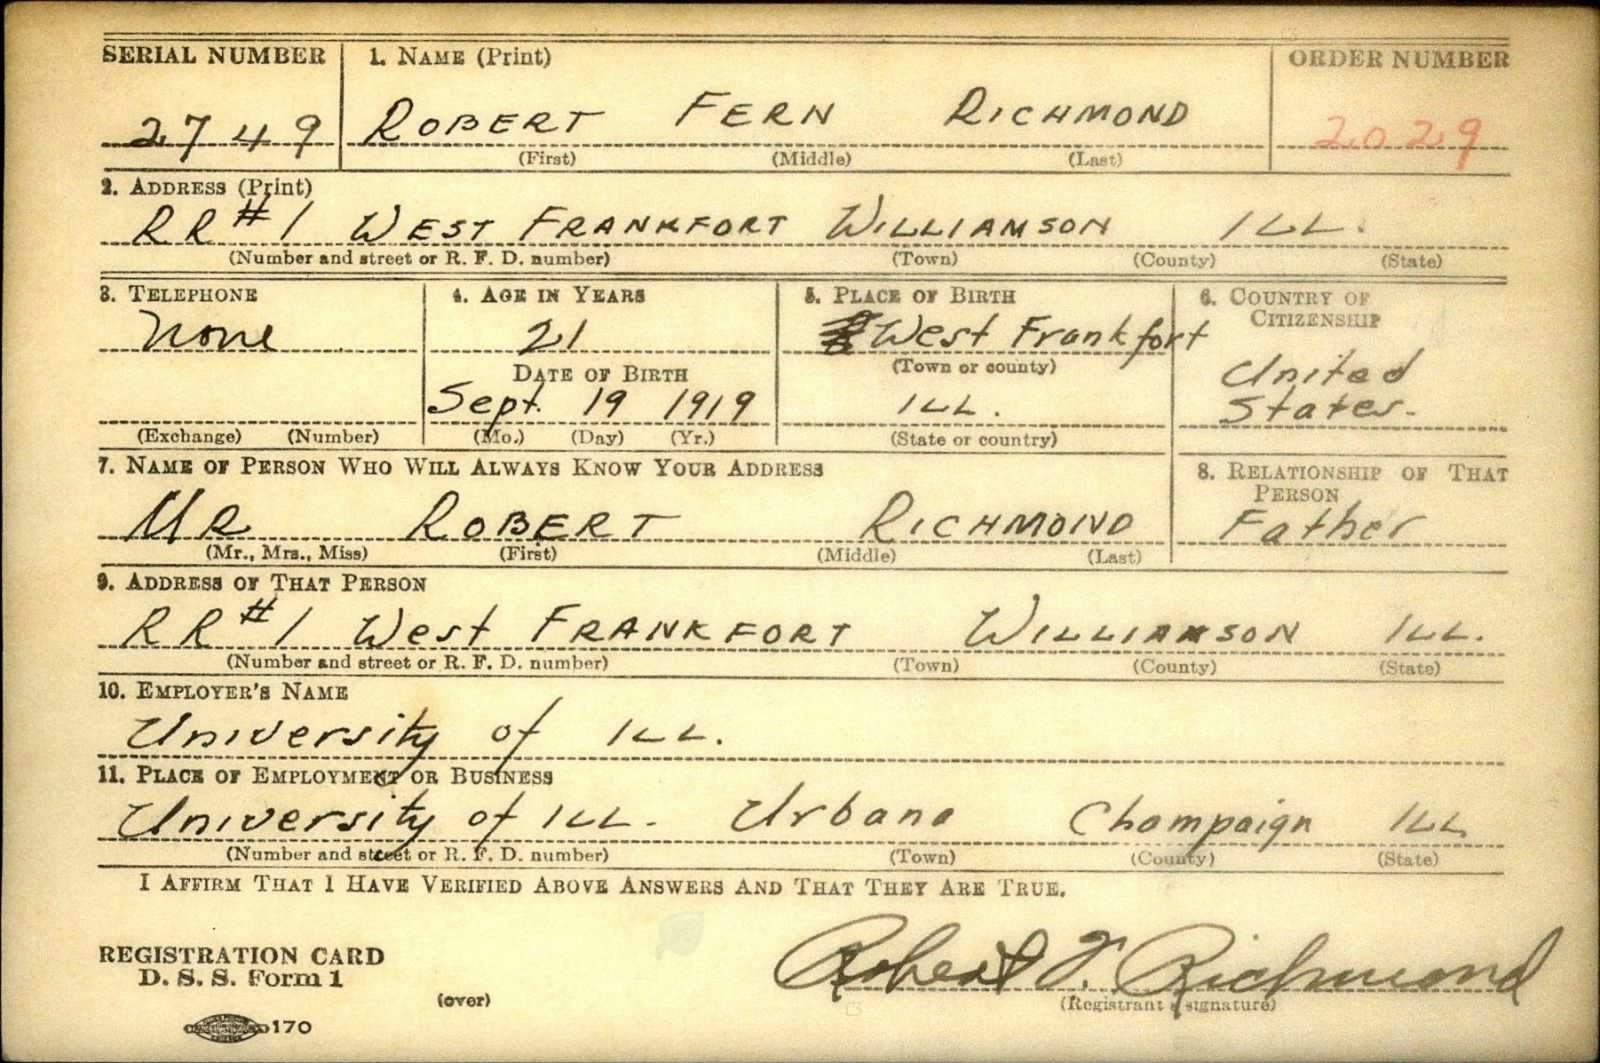 SERIAL NUMBER 1. NAME (Print) ORDER NUMBER
2749 ROBERT FERN RICHMOND 2029
(First) (Middle) (Last)
2. ADDRESS (Print)
RR#1 WEST FRANKFORT WILLIAMSON ILL.
(Number and street or R. F. D. number) (Town) (County) (State)
3. TELEPHONE 4. AGE IN YEARS 5. PLACE OF BIRTH 6. COUNTRY OF
CITIZENSHIP
None 21 West Frankfort
(Town or county)
DATE OF BIRTH United
Sept. 19 1919 ILL. States.
(Exchange) (Number) (Mo.) (Day) (Yr.) (State or country)
7. NAME OF PERSON WHO WILL ALWAYS KNOW YOUR ADDRESS 8. RELATIONSHIP OF THAT
PERSON
MR ROBERT RICHMOND Father
(Mr., Mrs., Miss) (First) (Middle) (Last)
9. ADDRESS OF THAT PERSON
RR#1 West FRANKFORT WILLIAMSON ILL.
(Number and street or R. F. D. number) (Town) (County) (State)
10. EMPLOYER'S NAME
University of ILL.
11. PLACE OF EMPLOYMENT OR BUSINESS
University of ILL. Urbana Champaign ILL
(Number and street or R. F. D. number) (Town) (County) (State)
I AFFIRM THAT I HAVE VERIFIED ABOVE ANSWERS AND THAT THEY ARE TRUE.
REGISTRATION CARD
D. S. S. Form 1
Robert F. Richmond
(over) (Registrant's signature)
170